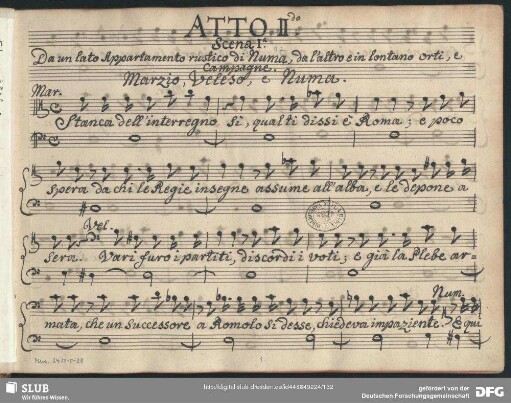 ATTO II.do
Scena I.a
Da un lato Appartamento rustico di Numa, da l'altro e in lontano orti, e
Campagne.
Marzio, Veleso, e Numa.
Mar.
Stanca dell'interregno Si, qual ti dissi è Roma; e poco
Spera da chi le Regie insegne assume all'alba, e le depone a
Vel.
Sera. Vari furo i partiti, discordi i voti; e già la Plebe ar-
Num.
mata, che un Successore a Romolo si desse, chiedeva impaziente. E qui
1
SLUB
Wir führen Wissen.
gefördert von der
Deutschen Forschungsgemeinschaft
DFG